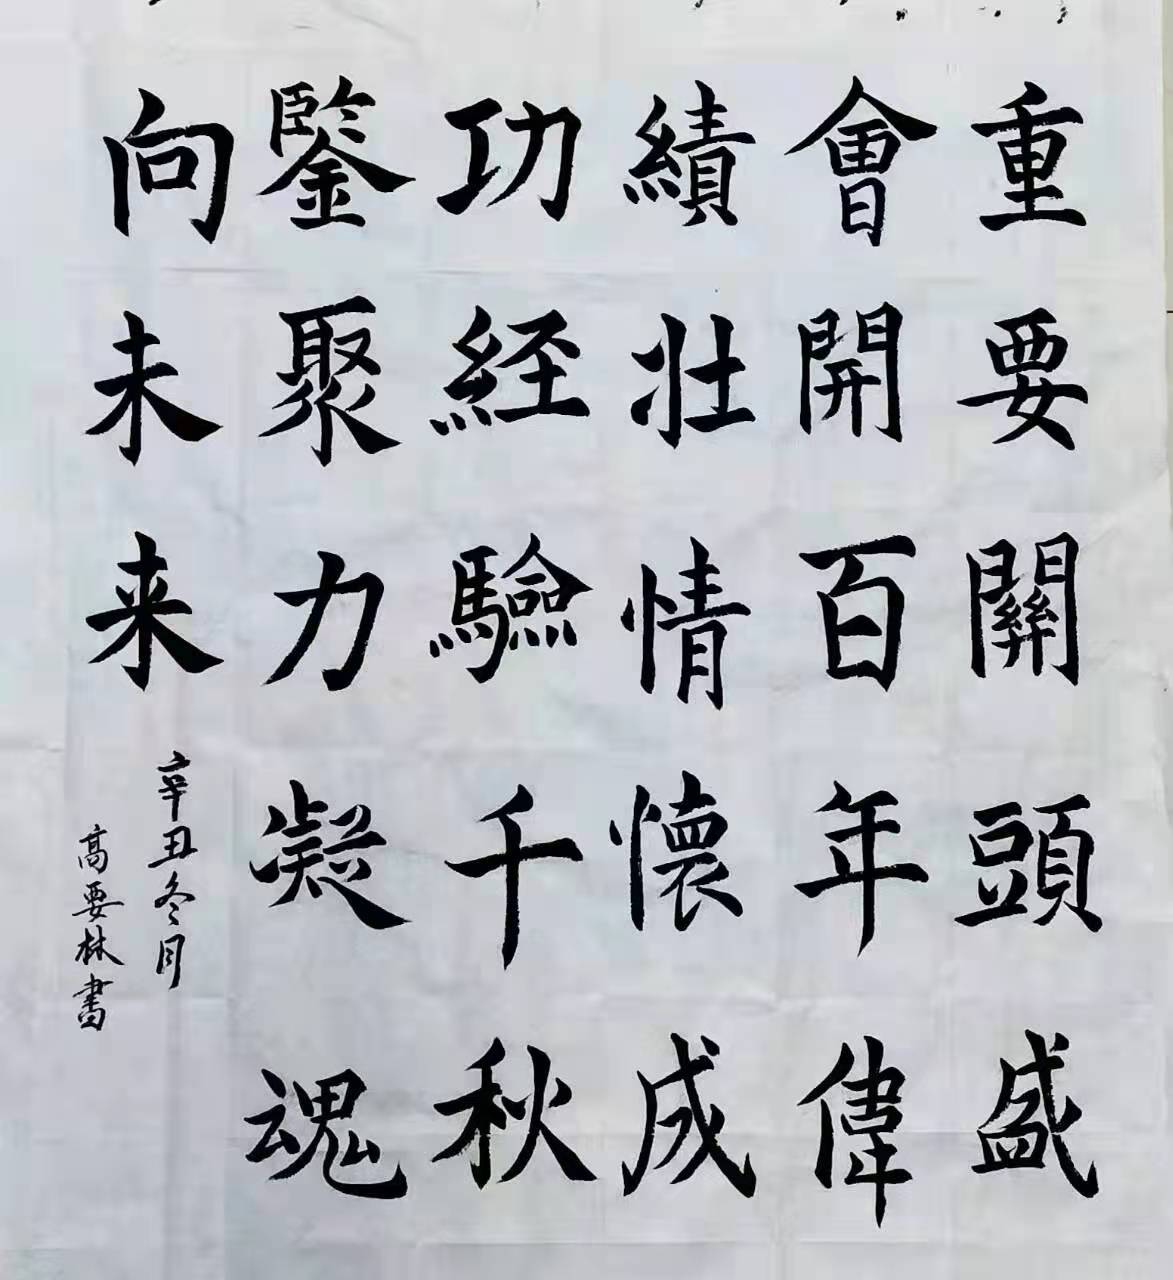 重要關頭盛
會開百年偉
績壯情懷成
功经驗千秋
鑒聚力凝魂
向未来
辛丑冬月
高要林書